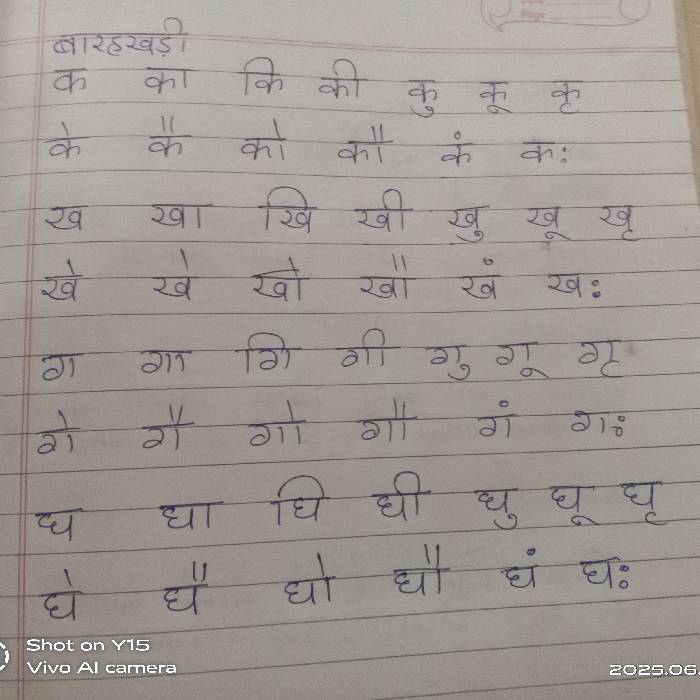 बारहखड़ी
क का कि की कु कू कृ
के कै को कौ कं कः
ख खा खि खी खु खू खृ
खे खे खो खौ खं खः
ग गा गि गी गु गू गृ
गे गै गो गौ गं गः
घ घा घि घी घु घू घृ
घे घै घो घौ घं घः
Shot on Y15
Vivo AI camera
2025.06.